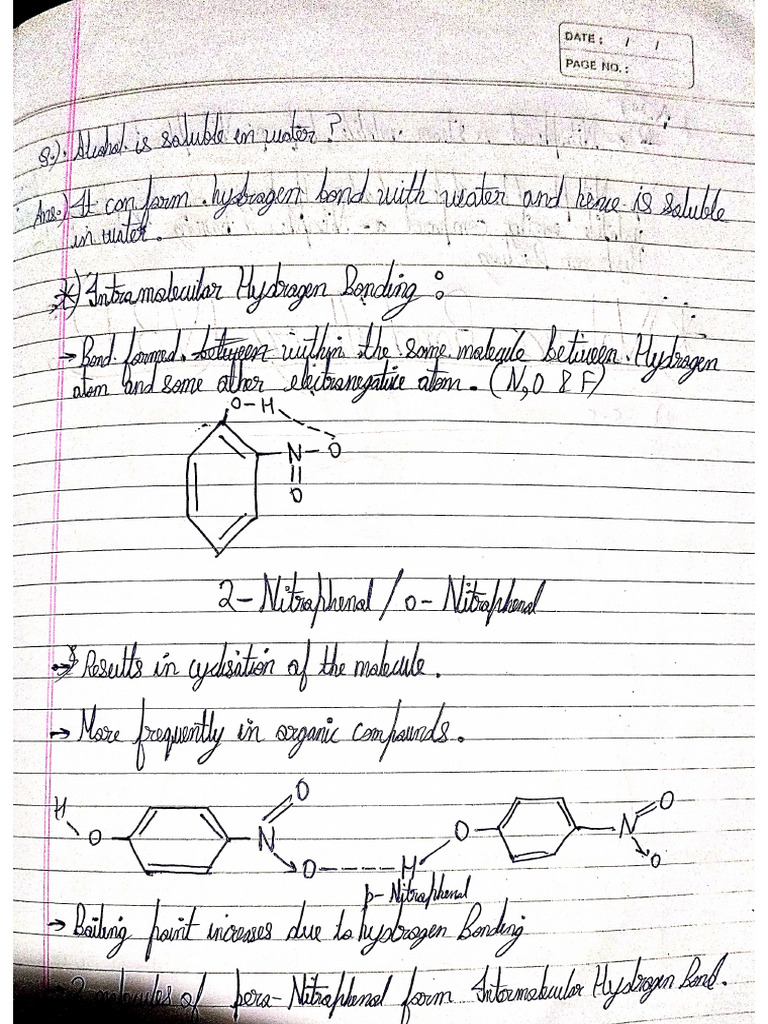 DATE: / /
PAGE NO.:
Q.). Alcohol is soluble in water?
Ans.) It can form hydrogen bond with water and hence is soluble
in water.
*) Intramolecular Hydrogen Bonding :
→ Bond formed between within the same molecule between Hydrogen
atom and some other electronegative atom. (N, O & F)
O-H
N-O
O
2-Nitrophenol / o-Nitrophenol
→ Results in cyclisation of the molecule.
→ More frequently in organic compounds.
H O
O O N
O N O H O
p-Nitrophenol
→ Boiling point increases due to hydrogen Bonding
→ 2 molecules of para-Nitrophenol form Intermolecular Hydrogen Bond.